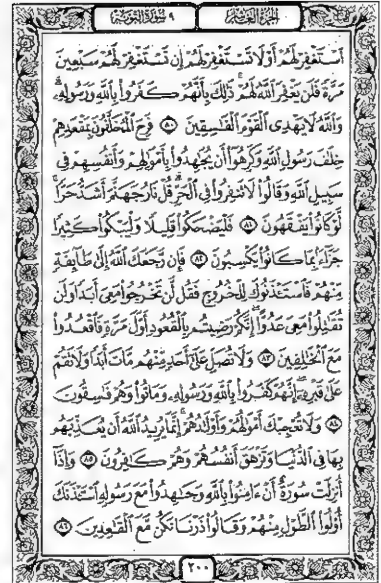 الجزء العاشر
٩ سورة التوبة
ٱسْتَغْفِرْ لَهُمْ أَوْ لَا تَسْتَغْفِرْ لَهُمْ إِن تَسْتَغْفِرْ لَهُمْ سَبْعِينَ
مَرَّةً فَلَن يَغْفِرَ ٱللَّهُ لَهُمْ ۚ ذَٰلِكَ بِأَنَّهُمْ كَفَرُوا۟ بِٱللَّهِ وَرَسُولِهِۦ ۗ
وَٱللَّهُ لَا يَهْدِى ٱلْقَوْمَ ٱلْفَٰسِقِينَ ٨٠ فَرِحَ ٱلْمُخَلَّفُونَ بِمَقْعَدِهِمْ
خِلَٰفَ رَسُولِ ٱللَّهِ وَكَرِهُوٓا۟ أَن يُجَٰهِدُوا۟ بِأَمْوَٰلِهِمْ وَأَنفُسِهِمْ فِى
سَبِيلِ ٱللَّهِ وَقَالُوا۟ لَا تَنفِرُوا۟ فِى ٱلْحَرِّ ۗ قُلْ نَارُ جَهَنَّمَ أَشَدُّ حَرًّا ۚ
لَّوْ كَانُوا۟ يَفْقَهُونَ ٨١ فَلْيَضْحَكُوا۟ قَلِيلًا وَلْيَبْكُوا۟ كَثِيرًا
جَزَآءًۢ بِمَا كَانُوا۟ يَكْسِبُونَ ٨٢ فَإِن رَّجَعَكَ ٱللَّهُ إِلَىٰ طَآئِفَةٍ
مِّنْهُمْ فَٱسْتَـْٔذَنُوكَ لِلْخُرُوجِ فَقُل لَّن تَخْرُجُوا۟ مَعِىَ أَبَدًا وَلَن
تُقَٰتِلُوا۟ مَعِىَ عَدُوًّا ۖ إِنَّكُمْ رَضِيتُم بِٱلْقُعُودِ أَوَّلَ مَرَّةٍ فَٱقْعُدُوا۟
مَعَ ٱلْخَٰلِفِينَ ٨٣ وَلَا تُصَلِّ عَلَىٰٓ أَحَدٍ مِّنْهُم مَّاتَ أَبَدًا وَلَا تَقُمْ
عَلَىٰ قَبْرِهِۦٓ ۖ إِنَّهُمْ كَفَرُوا۟ بِٱللَّهِ وَرَسُولِهِۦ وَمَاتُوا۟ وَهُمْ فَٰسِقُونَ
٨٤ وَلَا تُعْجِبْكَ أَمْوَٰلُهُمْ وَأَوْلَٰدُهُمْ ۚ إِنَّمَا يُرِيدُ ٱللَّهُ أَن يُعَذِّبَهُم
بِهَا فِى ٱلدُّنْيَا وَتَزْهَقَ أَنفُسُهُمْ وَهُمْ كَٰفِرُونَ ٨٥ وَإِذَآ
أُنزِلَتْ سُورَةٌ أَنْ ءَامِنُوا۟ بِٱللَّهِ وَجَٰهِدُوا۟ مَعَ رَسُولِهِ ٱسْتَـْٔذَنَكَ
أُو۟لُوا۟ ٱلطَّوْلِ مِنْهُمْ وَقَالُوا۟ ذَرْنَا نَكُن مَّعَ ٱلْقَٰعِدِينَ ٨٦
٢٠٠